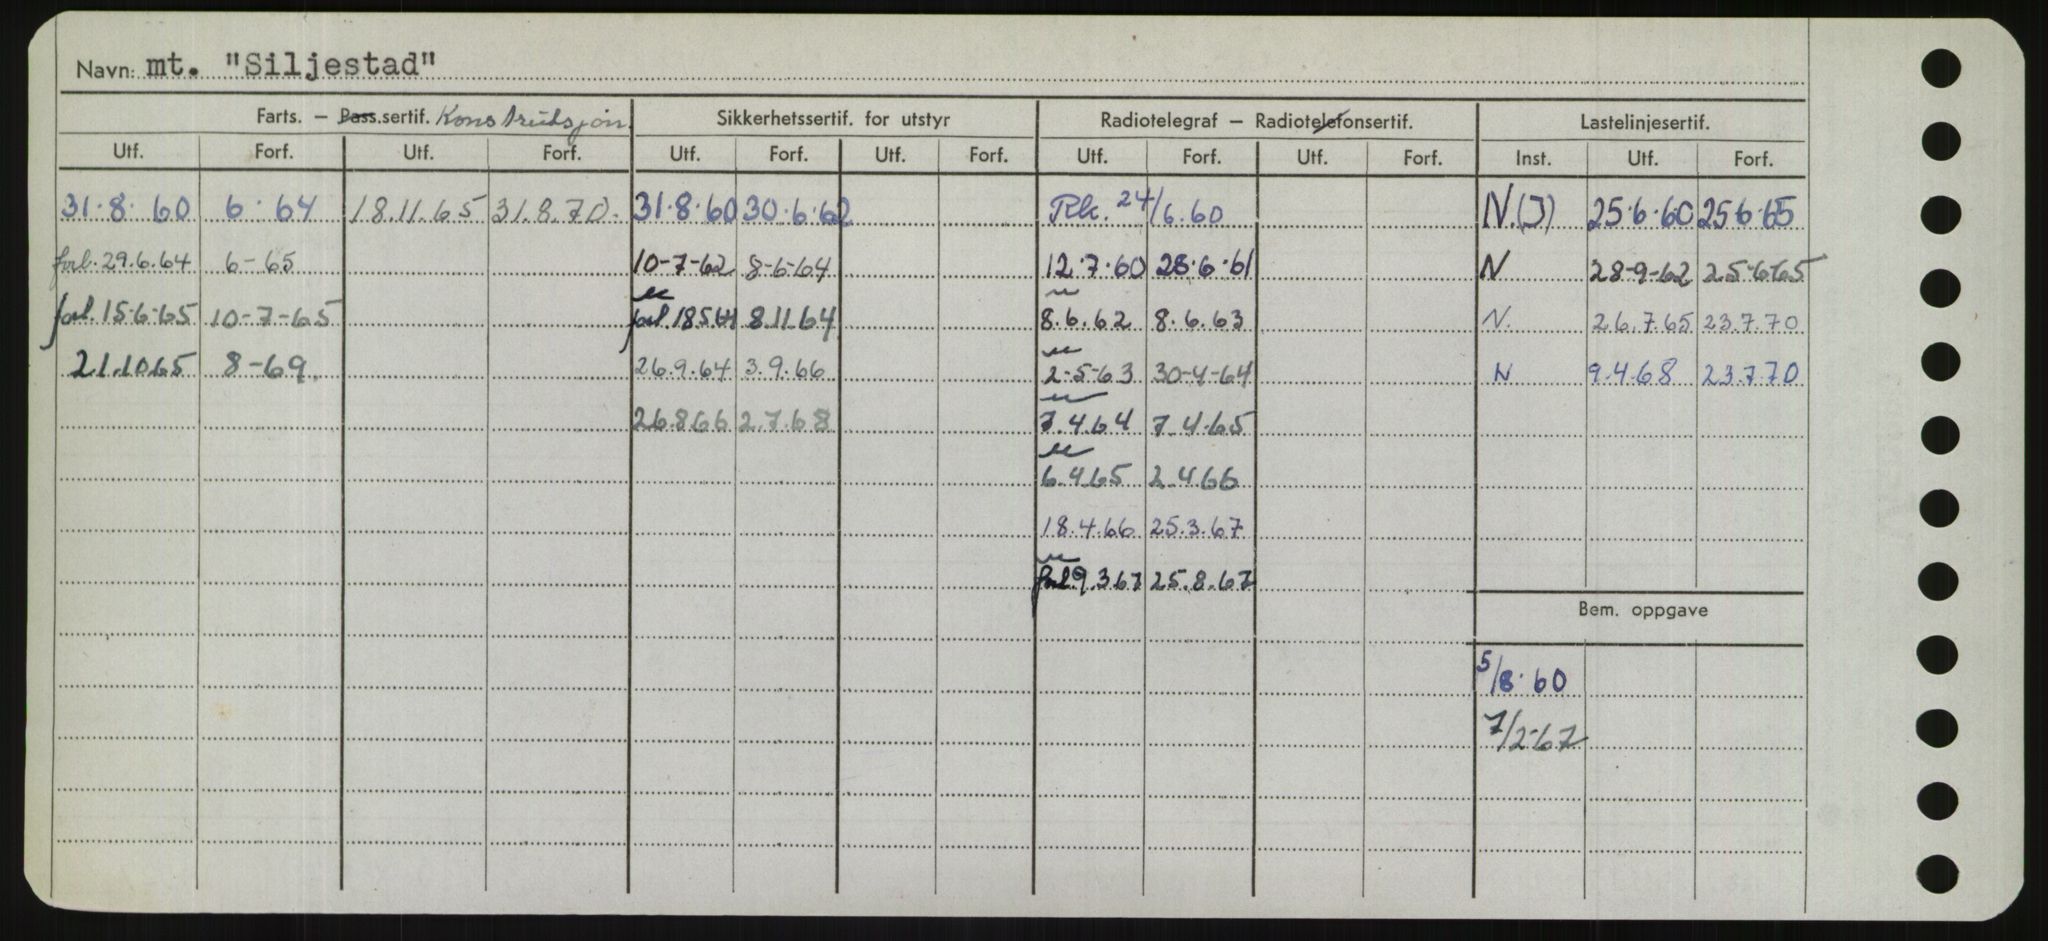 Navn: mt. "Siljestad"
Farts. — Pass.sertif. Konstruksjon. Sikkerhetssertif. for utstyr Radiotelegraf — Radiotelefonsertif. Lastelinjesertif.
Utf. Forf. Utf. Forf. Utf. Forf. Utf. Forf. Utf. Forf. Utf. Forf. Inst. Utf. Forf.
31.8.60 6.64 18.11.65 31.8.70. 31.8.60 30.6.62 Rk. 24/6.60 N.(J) 25.6.60 25.6.65
forl. 29.6.64 6-65 10-7-62 8-6-64 12.7.60 28.6.61 N 28-9-62 25-6-65
forl. 15-6-65 10-7-65 forl. 18.5.64 8.11.64 8.6.62 8.6.63 N. 26.7.65 23.7.70
21.10.65 8-69. 26.9.64 3.9.66 2-5-63 30-4-64 N 9.4.68 23.7.70
26.8.66 2.7.68 7.4.64 7.4.65
6.4.65 2.4.66
18.4.66 25.3.67
forl. 9.3.67 25.8.67
Bem. oppgave
5/8.60
7/2-67